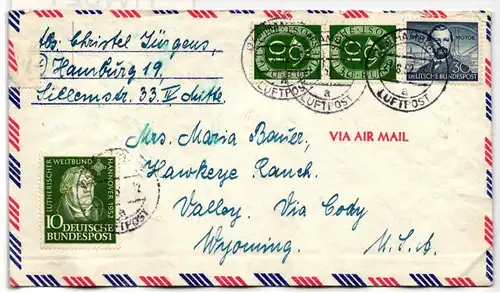 Abs. Christel Jürgens,
Hamburg 19,
Sillemstr. 33, IV Mitte
10
DEUTSCHE
10
DEUTSCHE
MOTOR
30
DEUTSCHE BUNDESPOST
LUFTPOST
LUFTPOST
LUFTPOST
a
a
VIA AIR MAIL
Mrs. Maria Bauer,
Hawkeye Ranch.
Valley, Via Cody
Wyoming. U.S.A.
LUTHERISCHER WELTBUND
HANNOVER 1952
10 DEUTSCHE
BUNDESPOST
LUFTPOST